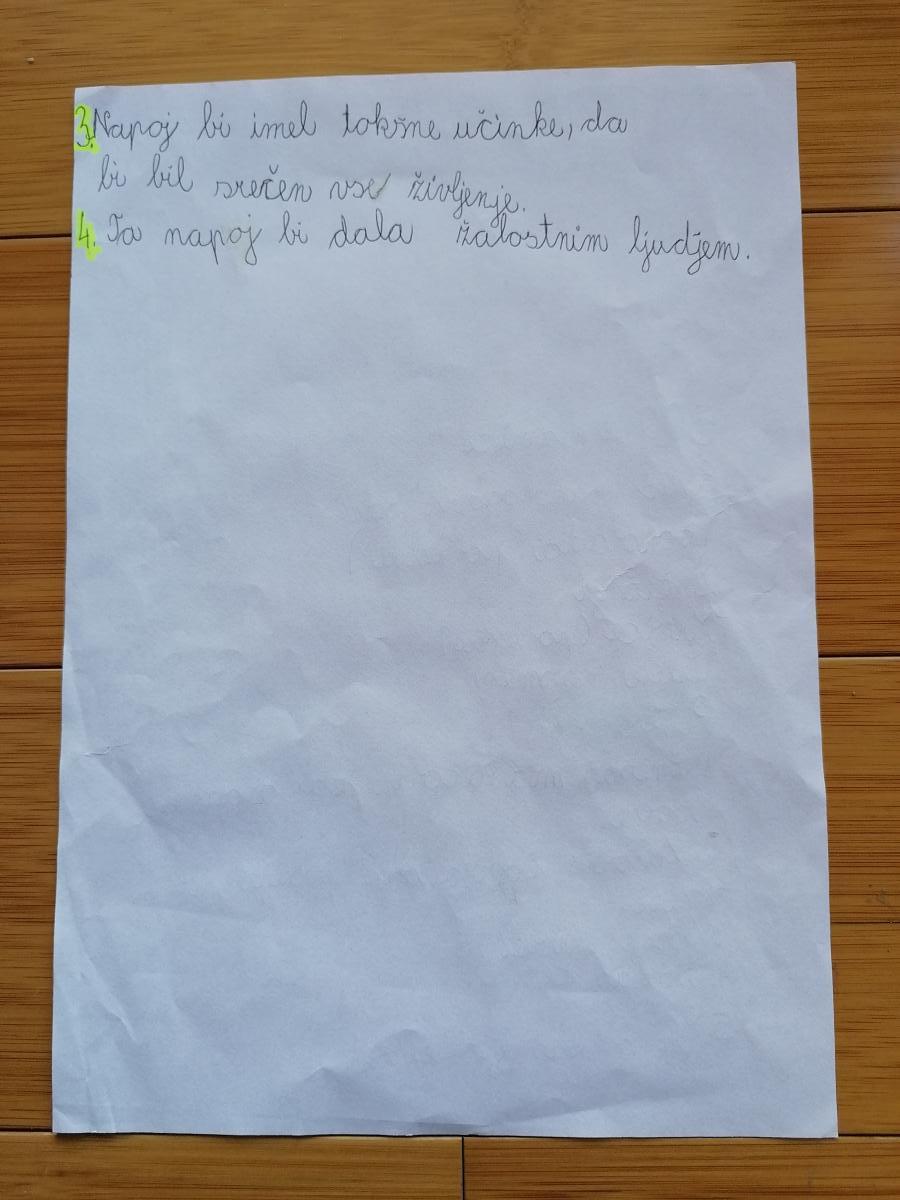 3. Napoj bi imel tokšne učinke, da
bi bil srečen vse življenje.
4. Ta napoj bi dala žalostnim ljudjem.